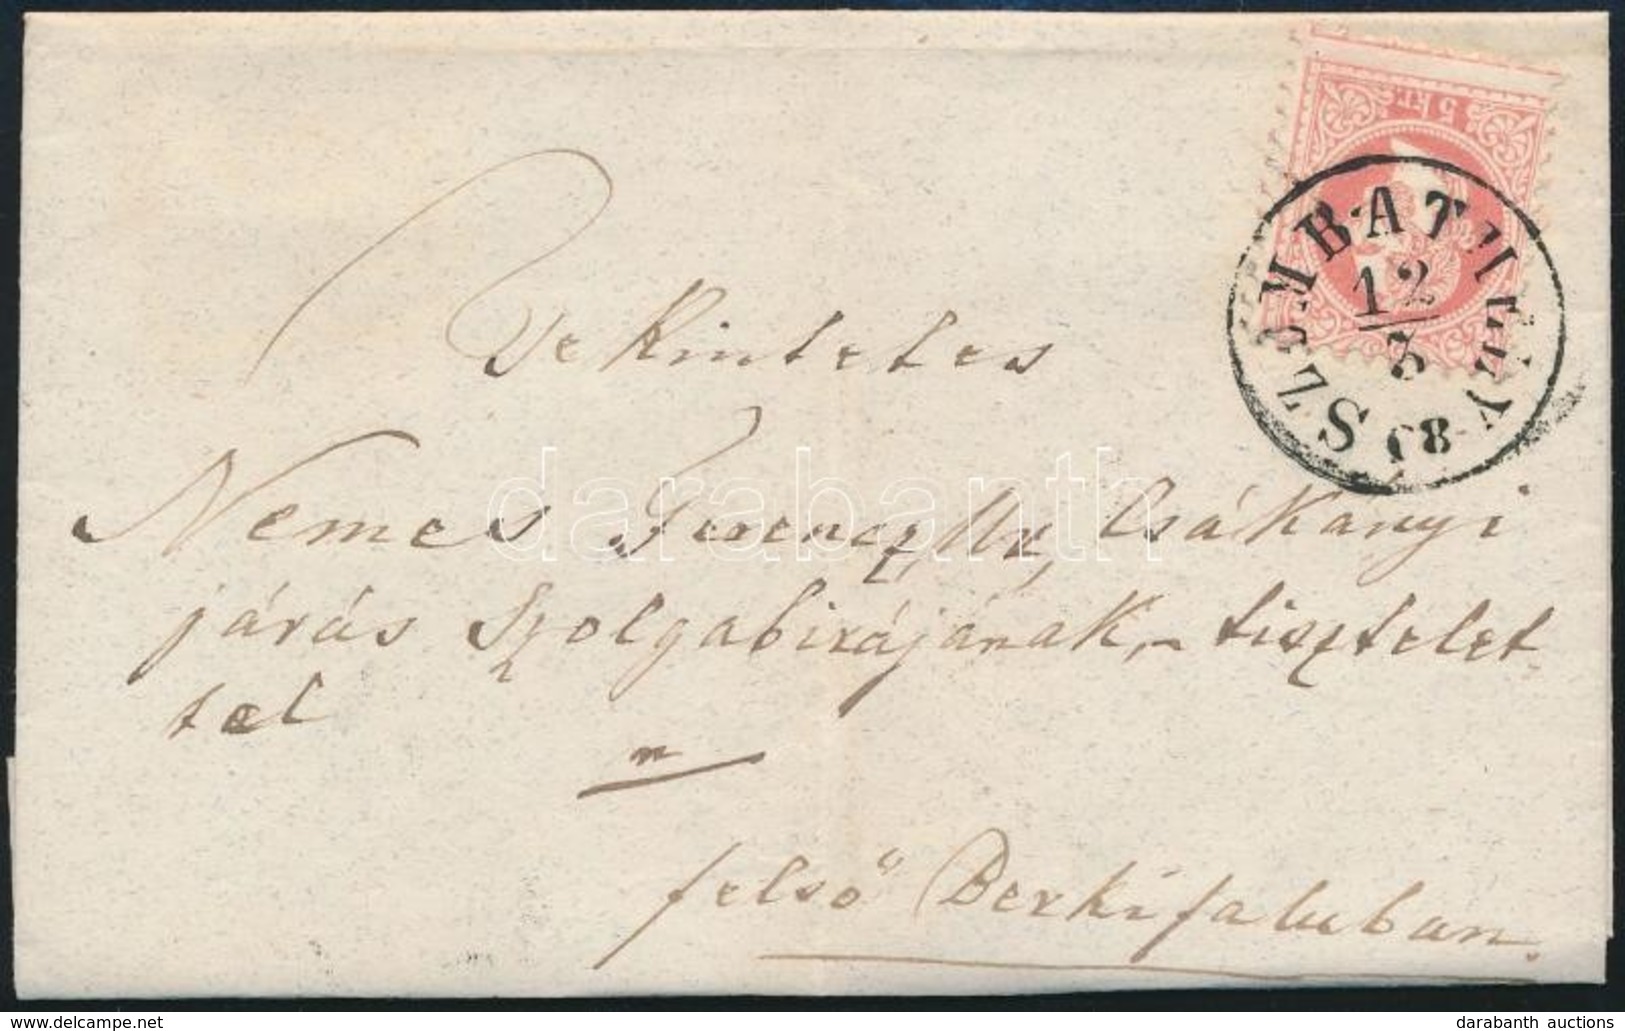 5 kr.
SZOMBATHELY
12
3
68
Tekintetes
Nemes Ferencz Úr, Csákányi
járás Szolgabirájának, tisztelet
tel
felső Berkifaluban
darabanth
www.delcampe.net
darabanth auctions